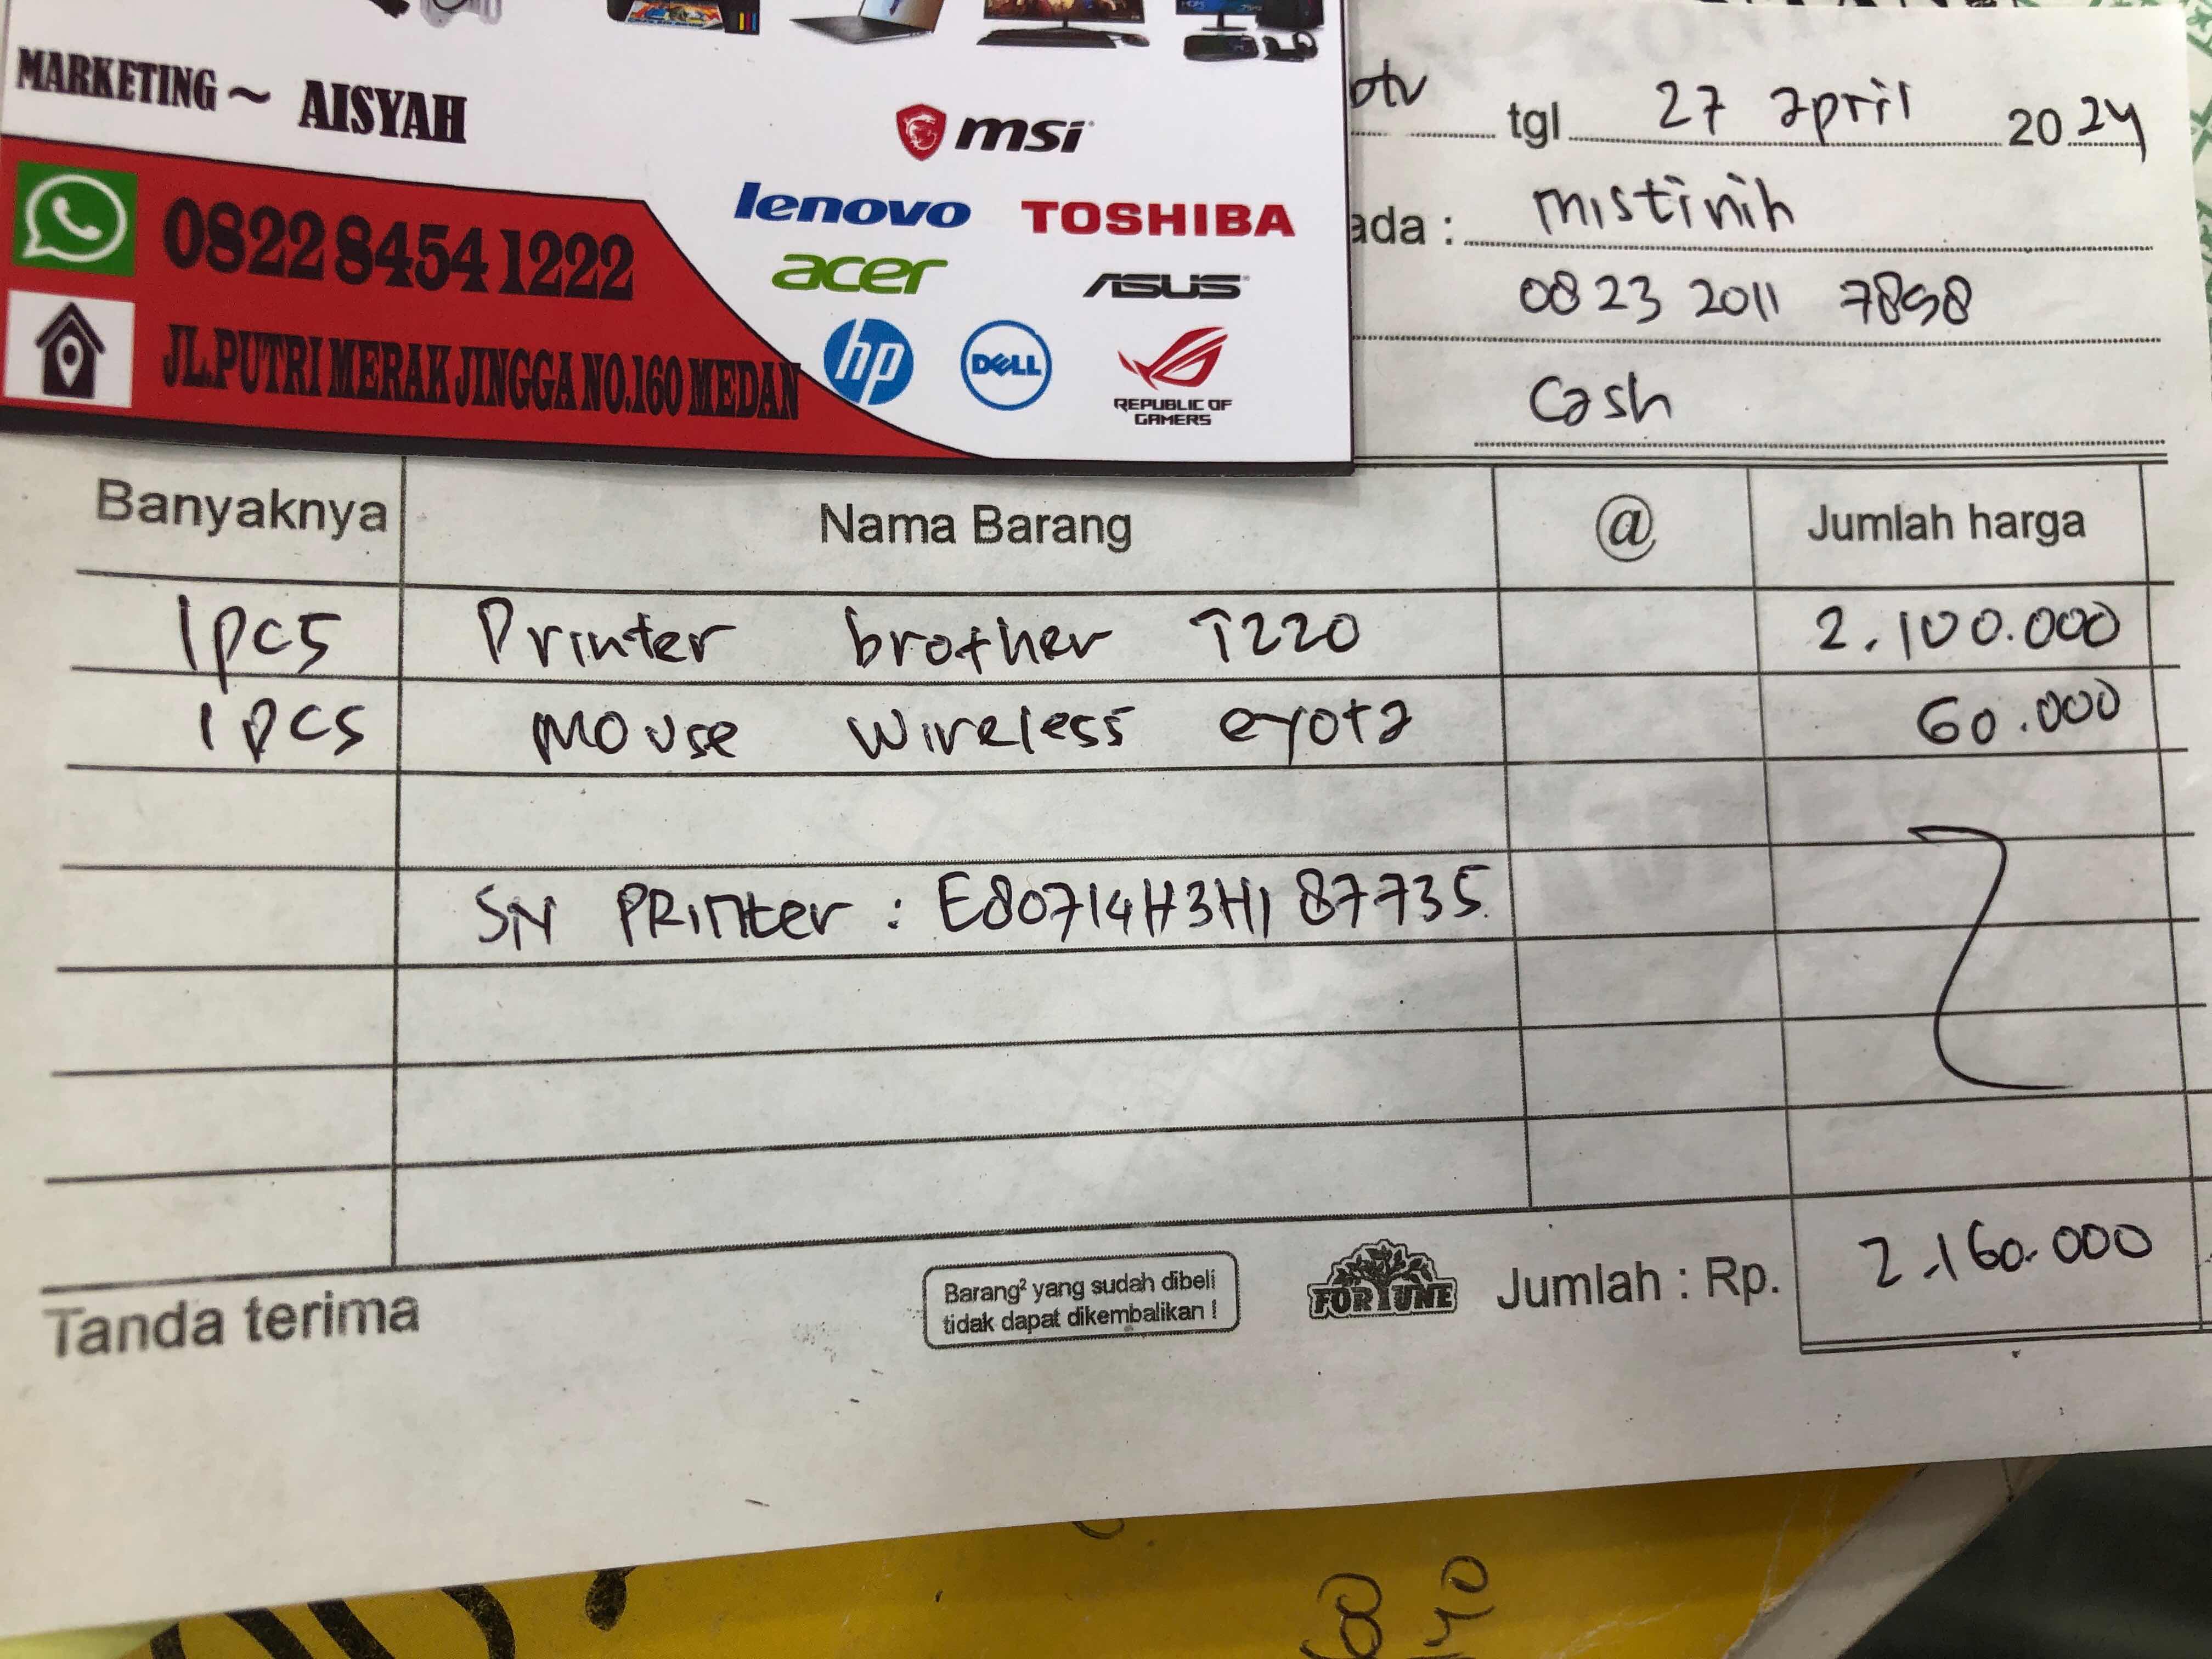 MARKETING ~ AISYAH
0822 8454 1222
JL.PUTRI MERAK JINGGA NO.160 MEDAN
msi
lenovo TOSHIBA
acer ASUS
hp DELL REPUBLIC OF
GAMERS
tgl 27 april 2024
ada : mistinih
0823 2011 7898
Cash
Banyaknya Nama Barang @ Jumlah harga
1pcs Printer brother T220 2.100.000
1pcs Mouse Wireless eyota 60.000
SN PRinter : E80714H3H187735
Tanda terima
Barang² yang sudah dibeli
tidak dapat dikembalikan !
FORTUNE
Jumlah : Rp. 2.160.000